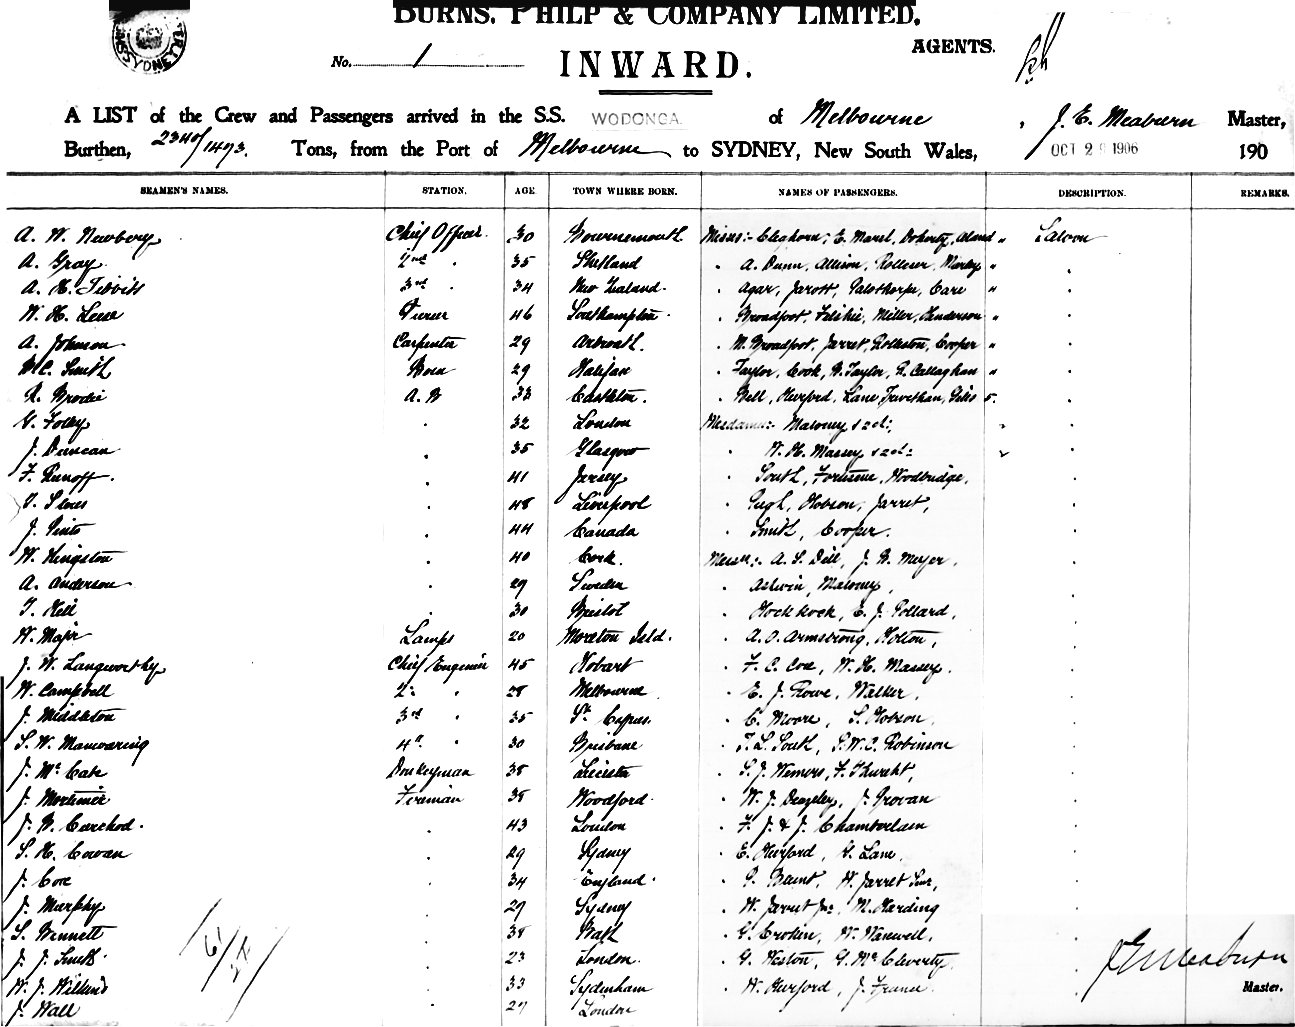 BURNS, PHILP & COMPANY LIMITED,
AGENTS.
No. 1
INWARD.
A LIST of the Crew and Passengers arrived in the S.S. WODONGA of Melbourne, J. E. Meaburn Master,
Burthen, 2340/1493. Tons, from the Port of Melbourne to SYDNEY, New South Wales, OCT 2 1906 190
SEAMEN'S NAMES. STATION. AGE TOWN WHERE BORN. NAMES OF PASSENGERS. DESCRIPTION. REMARKS.
A. W. Newbery Chief Officer. 30 Bournemouth Misses:- Cleghorn, E. Marsl, Doherty, " Saloon
A. Gray 2nd " 35 Shetland " A. Dunn, Allison, Morley "
A. H. Tibbits 3rd " 34 New Zealand. " Agar, Jarott, Palethorpe, Care "
W. H. 46 Southampton. " Broadfoot, Miller, Henderson "
A. Johnson. Carpenter 29 Arbroath. " M. Broadfoot, Jarret, Rolleston, Cooper "
Smith Bosn 29 Halifax " Taylor, Cook, W. Taylor, Callaghan "
R. Brodie A. B 33 " Bell, Hurford, Lane, Trevethan, Giles
G. Foley 32 London Mesdames:- Maloney
J. Duncan 35 Glasgow " W. H. Massey
F. 41 Jersey " South, Woodbridge,
48 Liverpool " Pugh, Hobson, Jarret,
J. 44 Canada " Smith, Cooper.
W. Kingston 40 Cork. Messrs:- A. S. Dill, J. W. Meyer,
A. Anderson 29 Sweden " Ashwin, Maloney,
T. Hill 30 Bristol " E. J. Pollard,
W. Major Lamps 20 Moreton Isld. " A. O. Armstrong, Holton,
J. W. Langworthy Chief Engineer 45 Hobart " F. C. Cox, W. H. Massey.
W. Campbell 2nd " 28 Melbourne " E. J. Rowe, Walker,
J. Middleton 3rd " 35 St. Cyprus. " C. Moore, S. Hobson,
S. W. Manwaring 4th " 30 Brisbane " T. L. South, S. W. C. Robinson
J. McCabe Donkeyman 38 Leicester " S. J.
J. Mortimer Fireman 38 Woodford. " W. J. Deazeley, J. Grovan
J. W. 43 London " F. J. & J. Chamberlain
S. H. Cowan 29 Sydney " E. Hurford, G. Lane,
J. Cox 34 England. " P. Blunt, W. Jarret Senr,
J. Murphy 27 Sydney " W. Jarret Jnr, M. Harding
S. Bennett 38 Bath " G. W. Waxwell,
J. J. Smith 23 London. " G. Heston, G. McCleverty.
W. J. 33 Sydenham " W. Hurford, J. France.
J. Wall 27 London
J E Meaburn
Master.